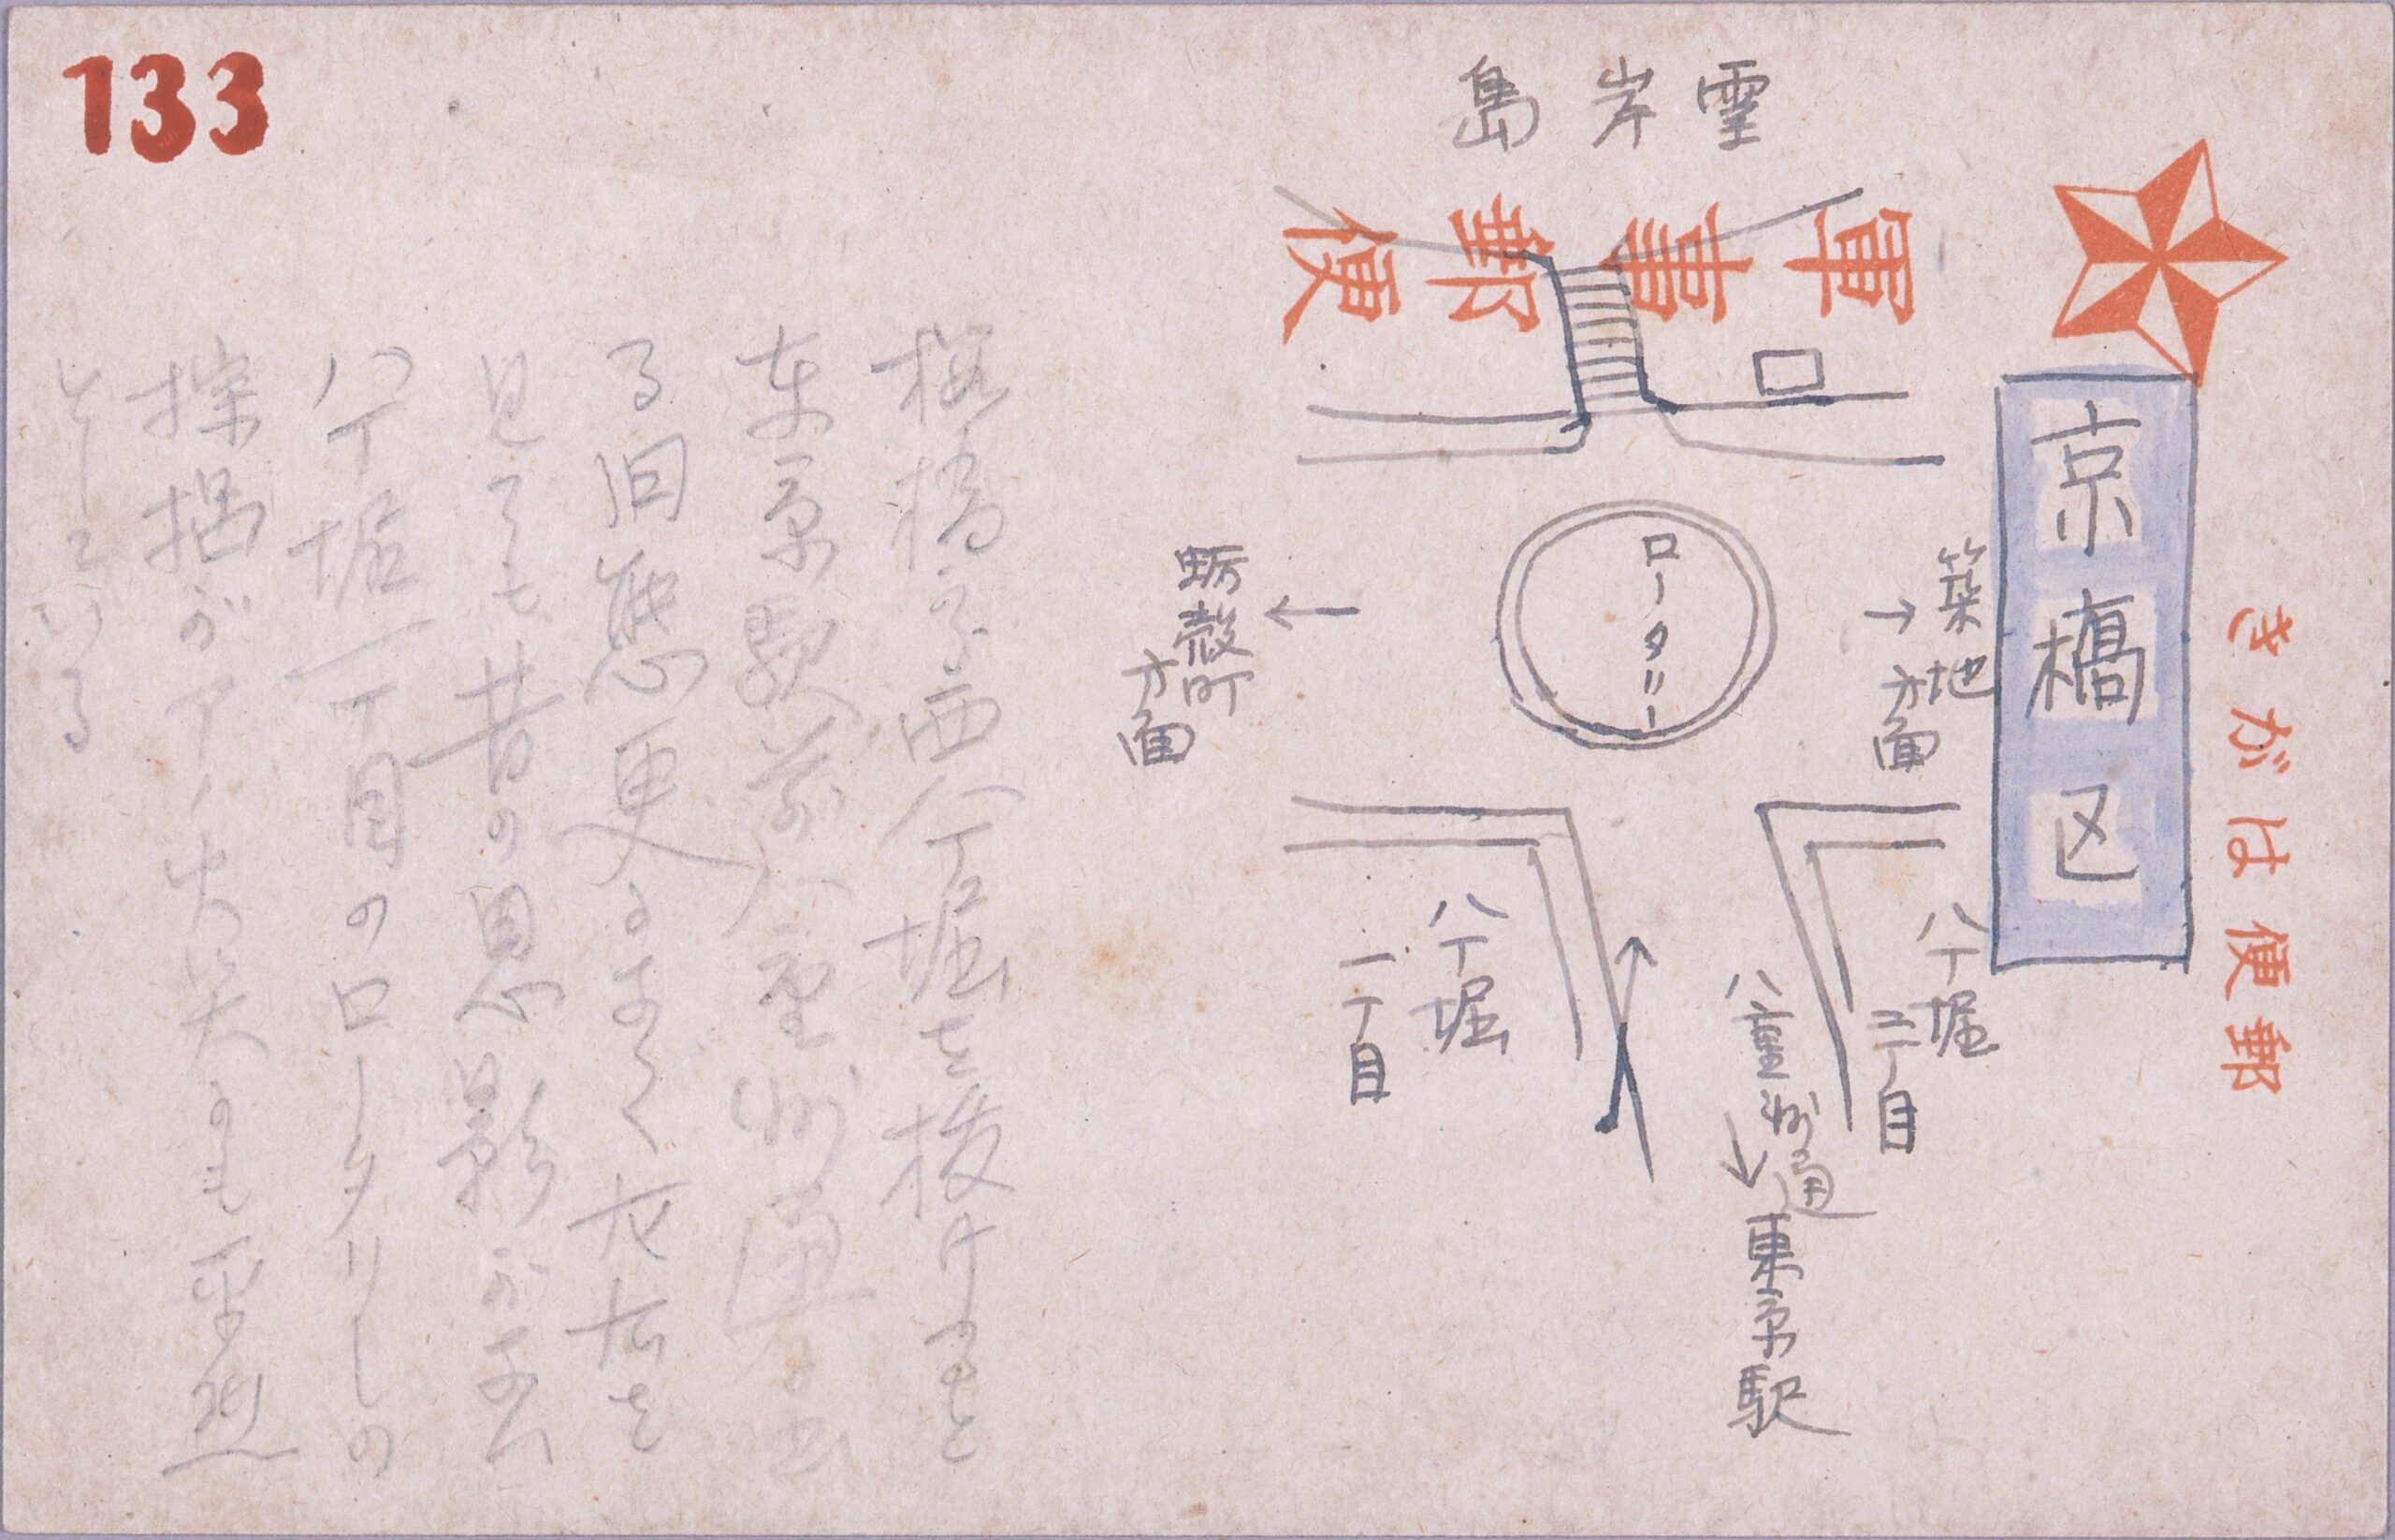 133
軍事郵便
きがは便郵
京橋区
霊岸島
ロータリー
築地方面
蛎殻町方面
八丁堀二丁目
八丁堀一丁目
八重洲通
東京駅
桜橋の西八丁堀を抜けると
東京駅前八重洲通に出
る旧態更になく左右を
見ても昔の思影がない
八丁堀一丁目のロータリーの
採掘が
している